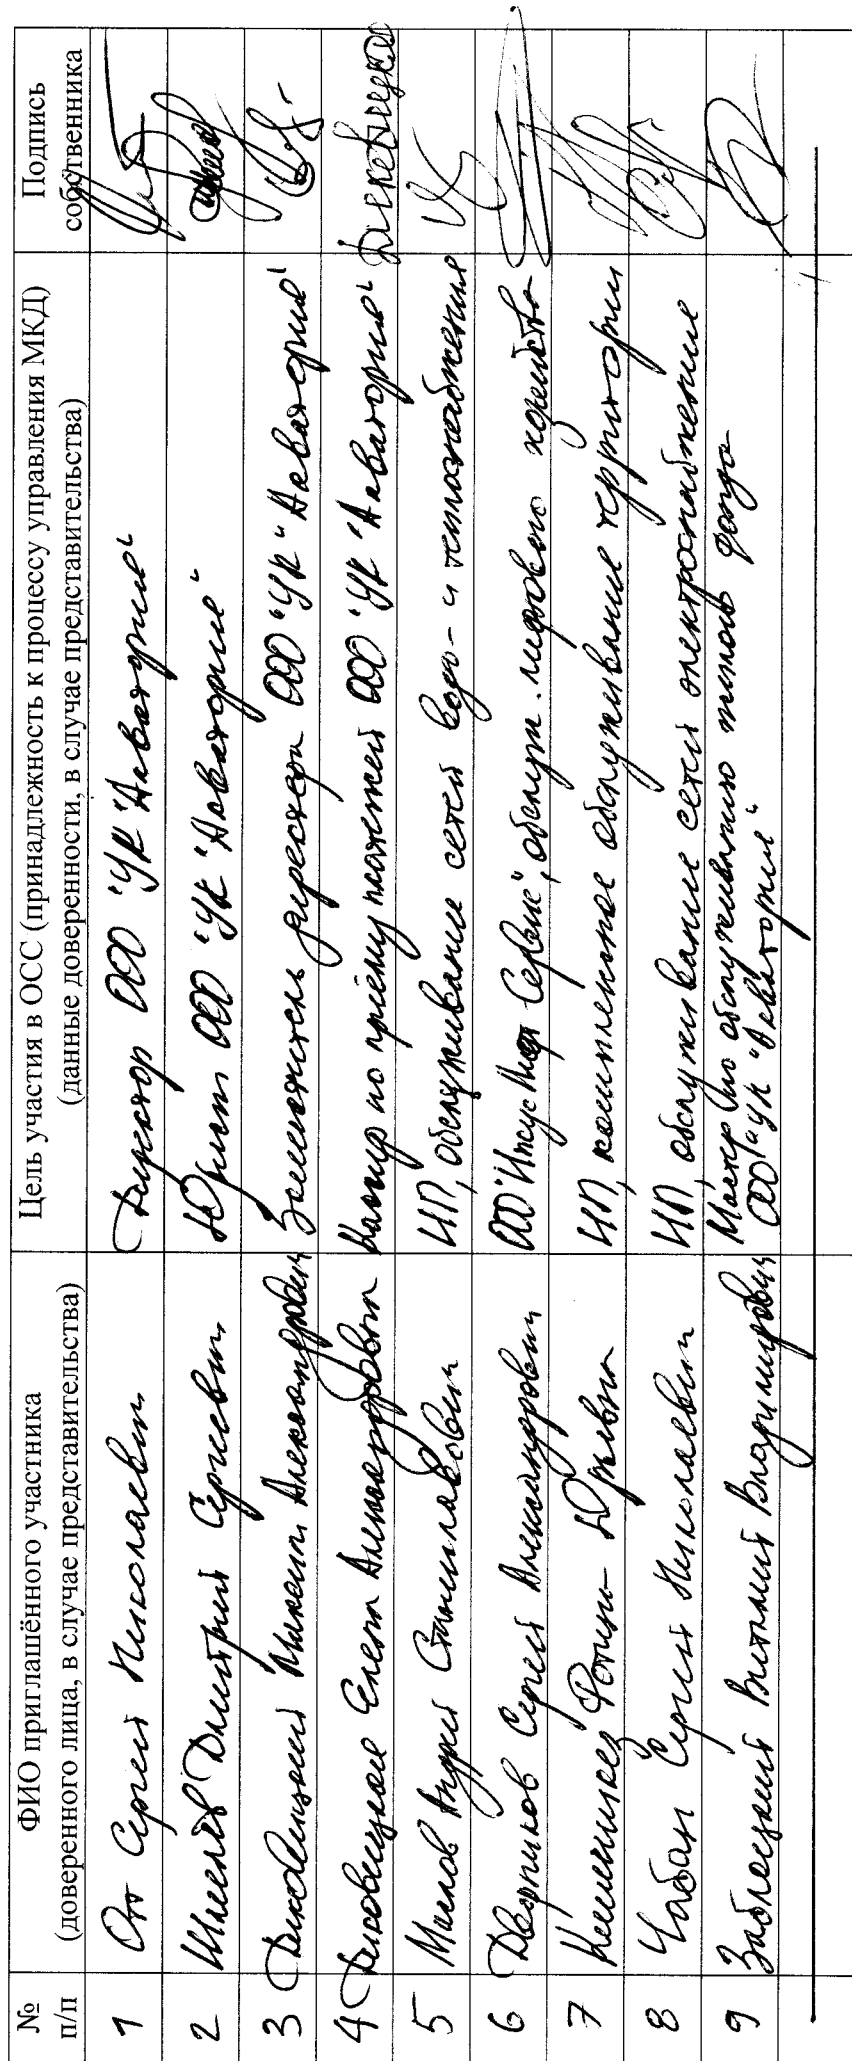 № п/п
ФИО приглашённого участника
(доверенного лица, в случае представительства)
Цель участия в ОСС (принадлежность к процессу управления МКД)
(данные доверенности, в случае представительства)
Подпись
собственника
1 Отт Сергей Николаевич Директор ООО "УК "Акватория"
2 Дмитрий Сергеевич Юрист ООО "УК "Акватория"
3 Максим Александрович Заместитель директора ООО "УК "Акватория"
4 Елена Александровна Кассир по приёму платежей ООО "УК "Акватория"
5 Маслов Андрей Станиславович ИП, обслуживание сетей водо- и теплоснабжения
6 Дворников Сергей Александрович ООО Сервис", обслуж. лифтового хозяйства
7 Юрьевна ИП, комплексное обслуживание территории
8 Чабан Сергей Николаевич ИП, обслуживание сетей электроснабжения
9 Заблоцкий Виталий Владимирович Мастер по обслуживанию жилого фонда
ООО "УК "Акватория"